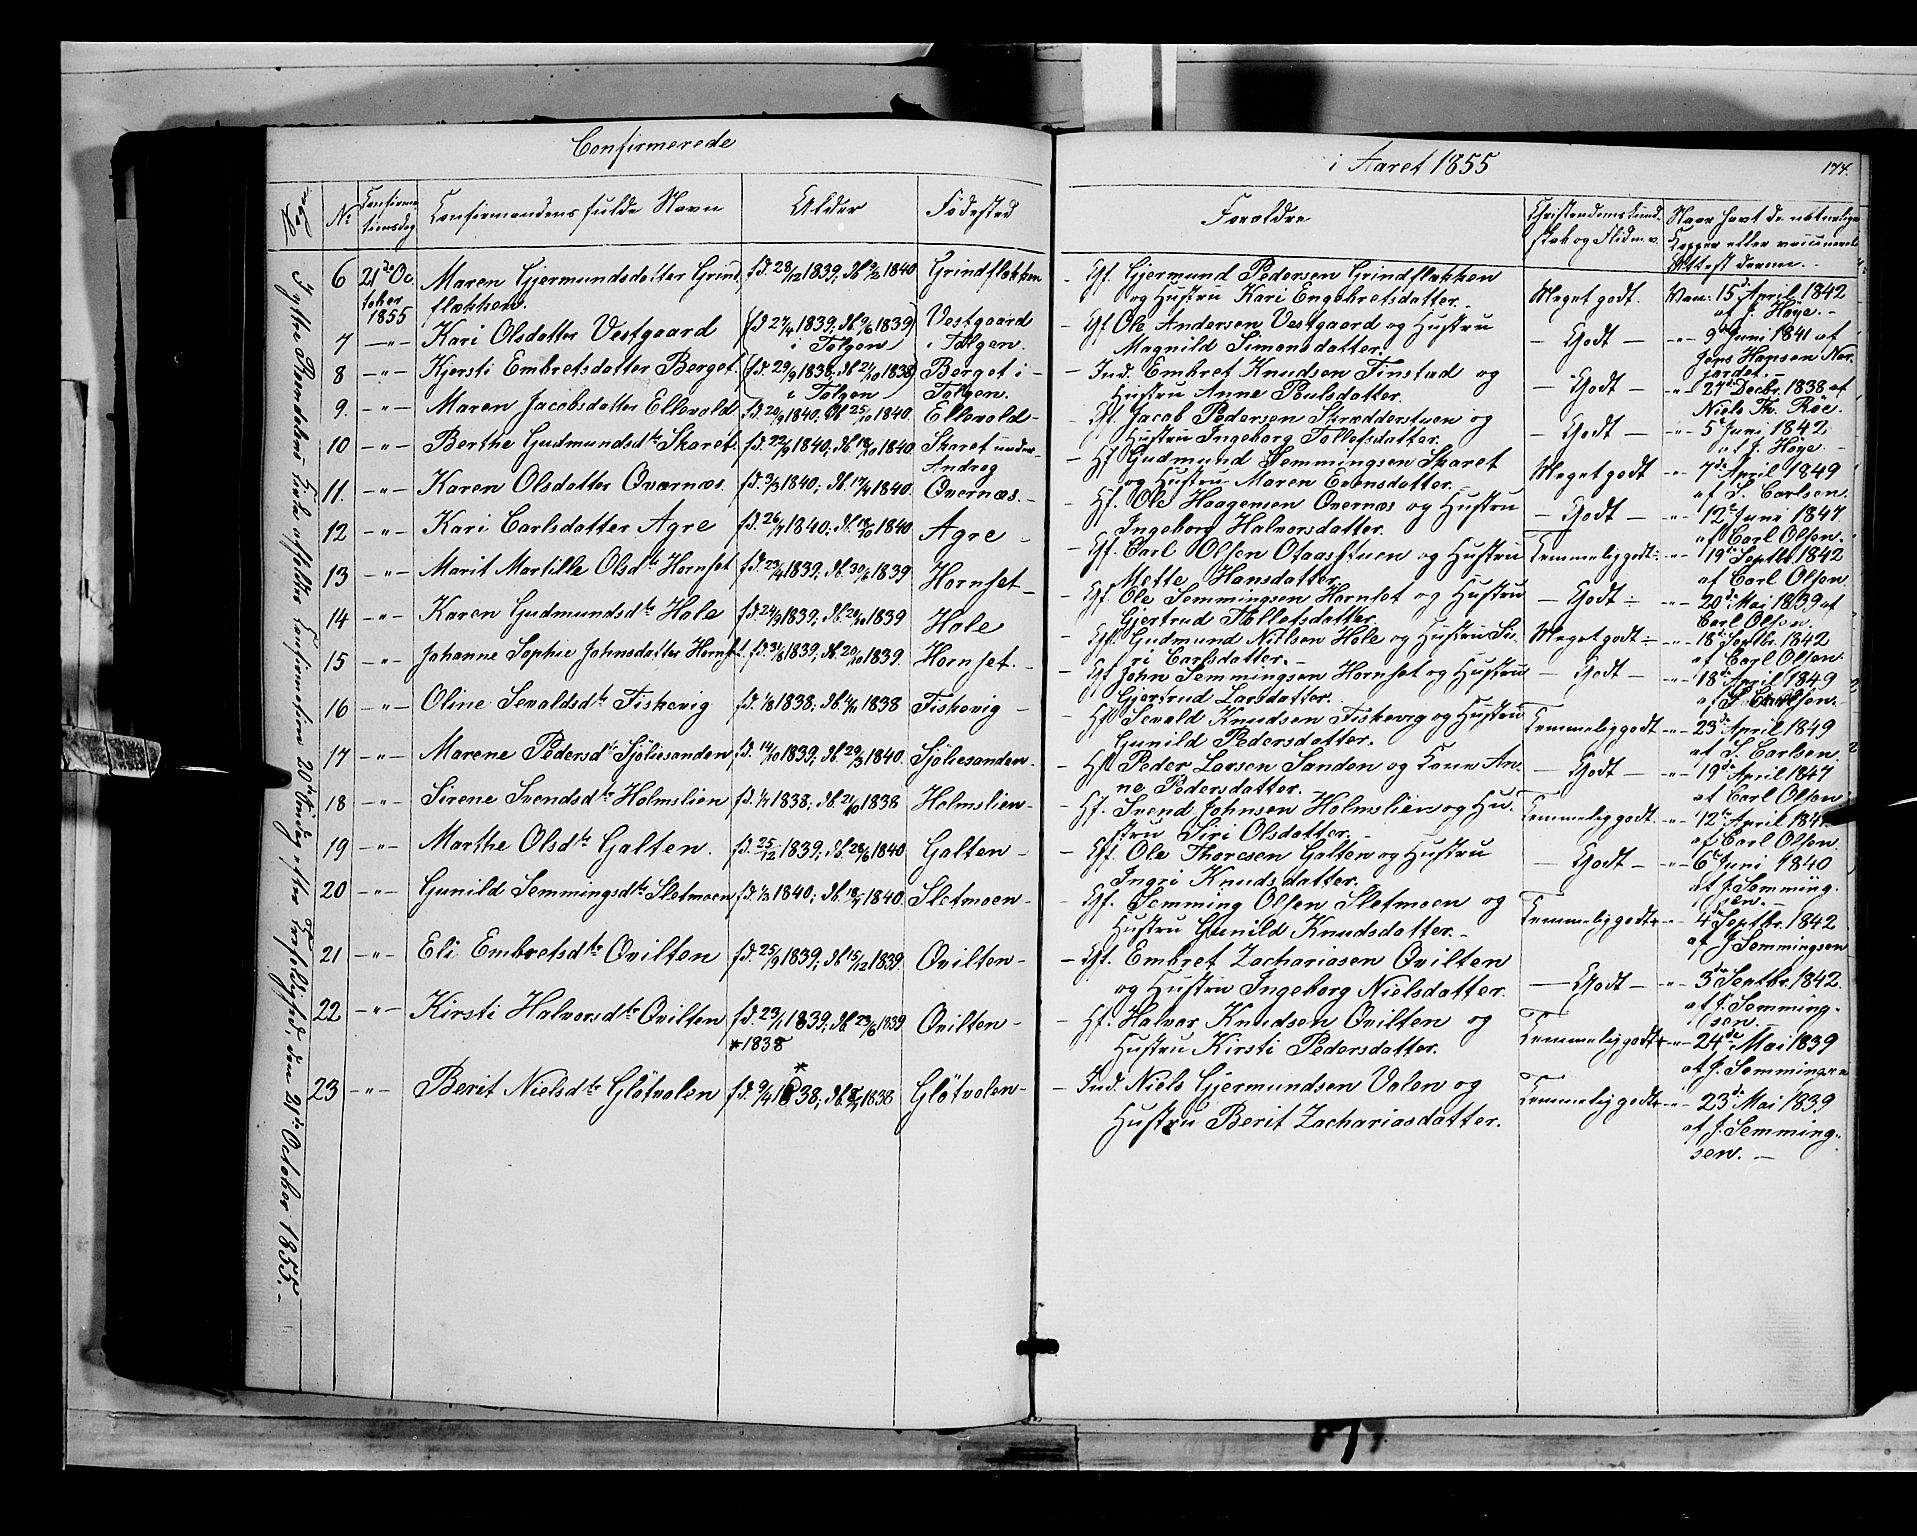 Confirmerede
i Aaret 1855
174.
No
Confirma
tionsdag
Confirmandens fulde Navn
Alder
Fødested
Forældre
Christendomskund-
skab og Flid m.v.
Naar havt de naturlige
Kopper eller vaccineret
Attest derom.
6 21de Oc Maren Gjermundsdatter Grind fd. 28/12 1839, db. 9/2 1840 Grindflækken
tober flækken.
1855
Gf. Gjermund Pedersen Grindflækken
og Hustru Kari Engebretsdatter.
Meget godt. Vac: 15de April 1842
af J. Høye.
7 -"- Kari Olsdatter Vestgaard 1839 1839 Vestgaard
i Tolgen i Tolgen.
Gf Ole Andersen Vestgaard og Hustru
Magnild Simonsdatter.
Godt 9de Juni 1841 af
Jens Hansen Nor-
jordet.
8 -"- Kjersti Embretsdatter Berget 1838 Berget i
i Tolgen Tolgen.
Ind. Embret Knudsen Finstad og
Hustru Anne Poulsdatter.
Godt 27de Decbr. 1838 af
Niels Th. Røe.
9. -"- Maren Jacobsdatter Ellevold fd. 20/9 1840, db. 25/10 1840. Ellevold
Gf. Jacob Pedersen Skrædderstuen og
Hustru Ingeborg Tollefsdatter.
Godt 5te Juni 1842
af J. Høye.
10 -"- Berthe Gudmundsdtr Skaret fd. 22/9 1840; db. 18/10 1840. Skaret under
Andreg
Hf Gudmund Semmingsen Skaret
og Hustru Maren Evensdatter.
Meget godt 7de April 1849
af S. Carlsen.
11 -"- Karen Olsdatter Qværnæs. fd. 9/3 1840; db. 17/4 1840. Qvernæs.
Hf. Ole Haagensen Qvernæs og Hustru
Ingeborg Halvorsdatter.
Godt 12te Juni 1847
af Carl Olsen.
12 -"- Kari Carlsdatter Agre 1840; db. 18/10 1840 Agre
Gf. Carl Olsen og Hustru
Mette Hansdatter
Temmelig godt 19de Septbr. 1842
af Carl Olsen
13 -"- Marit Martille Olsdtr Hornset fd. 23/4 1839; db. 30/6 1839 Hornset
Gf. Ole Semmingsen Hornset og Hustru
Gjertrud Tollefsdatter.
Godt 20de Mai 1839 af
Carl Olsen.
14 -"- Karen Gudmundsdtr Hole fd. 24/9 1839; db. 20/10 1839 Hole
Gf. Gudmund Nielsen Hole og Hustru Si-
ri Carlsdatter.
Meget godt 18de Septbr. 1842
af Carl Olsen.
15 -"- Johanne Sophie Johnsdatter Hornset. fd. 31/8 1839; db. 20/10 1839. Hornset.
Gf John Semmingsen Hornset og Hustru
Gjertrud Larsdatter.
Godt 18de April 1849
af S. Carlsen.
16 -"- Oline Sevaldsdtr Fiskevig fd. 1/8 1838; db. 1838 Fiskevig
Hf Sevald Knudsen Fiskevig og Hustru
Gunild Pedersdatter.
Temmelig godt 23de April 1849
af S. Carlsen.
17 -"- Marene Pedersdtr Sjøliesanden fd. 14/10 1839; db. 29/3 1840. Sjøliesanden
Hf Peder Larsen Sanden og Kone An-
ne Pedersdatter.
Godt 19de April 1847
af Carl Olsen
18 -"- Sirene Svendsdtr Holmslien 1838; 1838 Holmslien
Hf. Svend Johnsen Holmslien og Hu-
stru Siri Olsdatter.
Temmelig godt. 12te April 1847
af Carl Olsen
19 -"- Marthe Olsdtr Galten. fd. 25/12 1839; db. 28/6 1840 Galten
Gf. Ole Thoresen Galten og Hustru
Ingri Knudsdatter.
Godt 6te Juni 1840
af J. Semming-
sen.
20 -"- Gunild Semmingsdtr Sletmoen fd. 1/3 1840; 1840. Sletmoen
Gf. Semming Olsen Sletmoen og
Hustru Gunild Knudsdatter.
Temmelig godt 4de Septbr. 1842
af J. Semmingsen
21 -"- Eli Embretsdtr Qvilten fd. 25/9 1839; db. 15/12 1839. Qvilten
Gf. Embret Zachariasen Qvilten
og Hustru Ingeborg Nielsdatter.
Godt 3de Septbr. 1842.
af J. Semming-
sen.
22 -"- Kirsti Halvorsdtr Qvilten fd. 23/1 1839; db. 23/6 1839 Qvilten
Hf. Halvor Knudsen Qvilten og
Hustru Kirsti Pedersdatter.
Temmelig godt 24de Mai 1839
af J. Semmingsen
* 1838
23 -"- Berit Nielsdtr Gløtvolen fd. 9/4 1838; db. 1838 Gløtvolen
Ind. Niels Gjermundsen Volen og
Hustru Berit Zachariasdatter.
Temmelig godt 23de Mai 1839
af J. Semming-
sen.
20de Søndag efter Trefoldighed, den 21de October 1855.